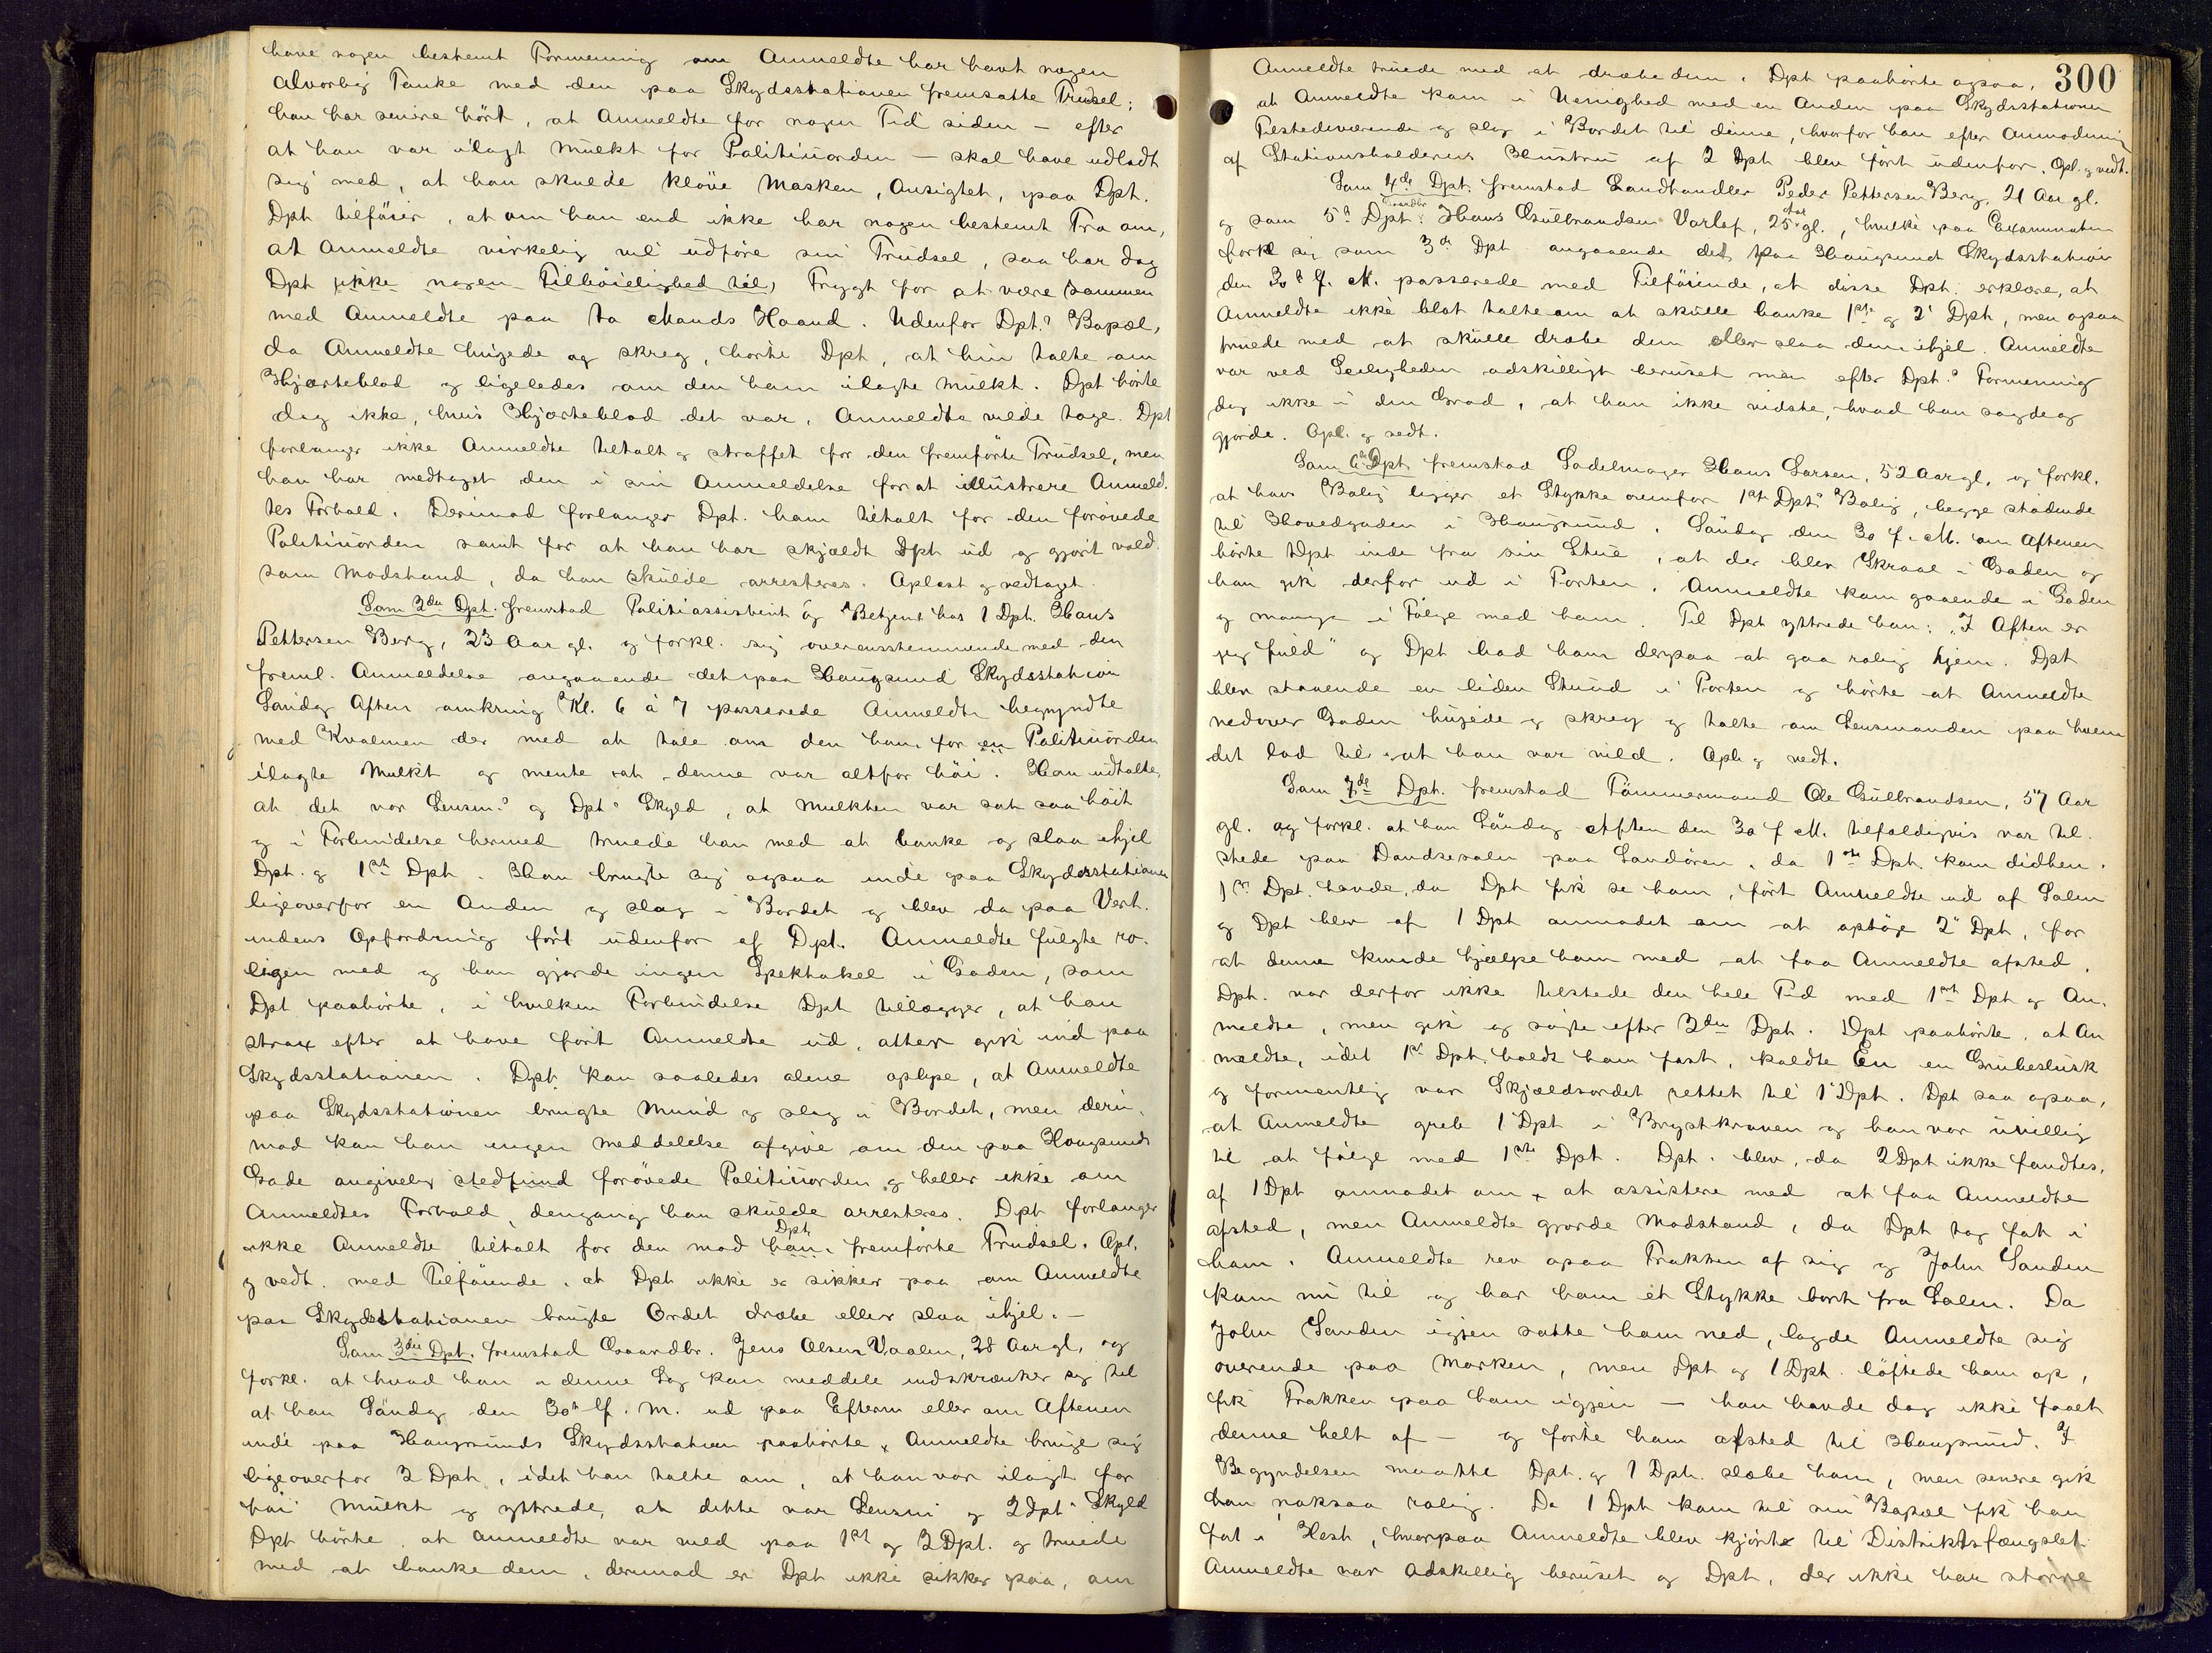 have nogen bestemt Formening om Anmeldte har havt nogen
alvorlig Tanke med den paa Skydsstationen fremsatte Trudsel;
han har senere hört, at Anmeldte for nogen Tid siden — efter
at han var ilagt Mulkt for Politiuorden — skal have udladt
sig med, at han skulde klöve Masken, Ansigtet, paa Dpt.
Dpt tilföier, at om han end ikke har nogen bestemt Tro om,
at Anmeldte virkelig vil udföre sin Trudsel, saa har dog
Dpt ikke nogen Tilböielighed til, Frygt for at være sammen
med Anmeldte paa to Mands Haand. Udenfor Dpt.s Bopæl,
da Anmeldte hujede og skreg, hörte Dpt, at hin talte om
Hjerteblod og ligeledes om den ham ilagte Mulkt. Dpt hörte
dog ikke, hvis Hjerteblod det var, Anmeldte vilde tage. Dpt
forlanger ikke Anmeldte tiltalt og straffet for den fremförte Trudsel, men
han har medtaget den i sin Anmeldelse for at illustrere Anmeld.
tes Forhold. Derimod forlanger Dpt. ham tiltalt for den forövede
Politiuorden samt for at han har skjældt Dpt ud og gjort vold
som Modstand, da han skulde arresteres. Oplæst og vedtaget.
Som 2den Dpt. fremstod Politiassistent og Betjent hos 1 Dpt. Hans
Pettersen Berg, 23 Aar gl. og forkl. sig overensstemmende med den
freml. Anmeldelse angaaende det paa Haugsund Skydsstation
Söndag Aften omkring Kl. 6 à 7 passerede Anmeldte begyndte
med Kvalmen der med at tale om den ham for en Politiuorden
ilagte Mulkt og mente at denne var altfor höi. Han udtalte,
at det var Lensm.s og Dpts Skyld, at Mulkten var sat saa höit
og i Forbindelse hermed truede han med at banke og slaa ihjel
Dpt. og 1ste Dpt. Han brugte sig ogsaa inde paa Skydsstationen
ligeoverfor en Anden og slog i Bordet og blev da paa Vert.
indens Opfordring fört udenfor af Dpt. Anmeldte fulgte ro.
ligen med og han gjorde ingen Spektakel i Gaden, som
Dpt paahörte, i hvilken Forbindelse Dpt tillægger, at han
strax efter at have fört Anmeldte ud, atter gik ind paa
Skydsstationen. Dpt. kan saaledes alene oplyse, at Anmeldte
paa Skydsstationen brugte Mund og slog i Bordet, men deri.
mod kan han ingen Meddelelse afgive om den paa Haugsunds
Gade angivelig stedfund forövede Politiuorden og heller ikke om
Anmeldtes Forhold, dengang han skulde arresteres. Dpt forlanger
ikke Anmeldte tiltalt for den mod ham Dpt. fremförte Trudsel. Opl.
og vedt. med Tilföiende, at Dpt ikke er sikker paa om Anmeldte
paa Skydsstationen brugte Ordet dræbe eller slaa ihjel. —
Som 3die Dpt. fremstod Gaardbr. Jens Olsen Vaalen, 28 Aar gl. og
forkl. at hvad han i denne Sag kan meddele indskrænker sig til
at han Söndag den 30te f. M. ud paa Efterm eller om Aftenen
inde paa Haugsunds Skydsstation paahörte, Anmeldte bruge sig
ligeoverfor 2 Dpt, idet han talte om, at han var ilagt for
höi Mulkt og yttrede, at dette var Lensm og 2 Dpts Skyld
Dpt hörte, at Anmeldte var vred paa 1ste og 2 Dpt. og truede
med at banke dem, derimod er Dpt ikke sikker paa, om
300
Anmeldte truede med at dræbe dem. Dpt paahörte ogsaa,
at Anmeldte kom i Uenighed med en Anden paa Skydsstationen
Tilstedeværende og slog i Bordet til denne, hvorfor han efter Anmodning
af Stationsholderens Hustru af 2 Dpt blev fört udenfor. Opl. og vedt.
Som 4de Dpt. fremstod Landhandler Peder Pettersen Berg, 21 Aar gl.
og som 5te Dpt. Gaardbr Hans Gulbrandsen Varlof, 25 Aar gl., hvilke paa Examination
forkl sig som 3de Dpt angaaende det paa Haugsund Skydsstation
den 30te f. M. passerede med Tilföiende, at disse Dpt. erklære, at
Anmeldte ikke blot talte om at skulle banke 1ste og 2 Dpt, men ogsaa
truede med at skulle dræbe dem eller slaa dem ihjel. Anmeldte
var ved Leiligheden adskilligt beruset men efter Dpt.s Formening
dog ikke i den Grad, at han ikke vidste, hvad han sagde og
gjorde. Opl. og vedt.
Som 6te Dpt. fremstod Sadelmager Hans Larsen, 52 Aar gl. og forkl.
at hans Bolig ligger et Stykke ovenfor 1ste Dpts Bolig, begge stödende
til Hovedgaden i Haugsund. Söndag den 30 f. M. om Aftenen
hörte Dpt inde fra sin Stue, at der blev Skraal i Gaden og
han gik derfor ud i Porten. Anmeldte kom gaaende i Gaden
og mange i Fölge med ham. Til Dpt yttrede han: „I Aften er
jeg fuld" og Dpt bad ham derpaa at gaa rolig hjem. Dpt
blev staaende en liden Stund i Porten og hörte at Anmeldte
nedover Gaden hujede og skreg og talte om Lensmanden paa hvem
det lod til at han var vild. Opl. og vedt.
Som 7de Dpt. fremstod Tömmermand Ole Gulbrandsen, 57 Aar
gl. og forkl. at han Söndag Aften den 30 f M. tilfældigvis var til.
stede paa Dandsesalen paa Sandören, da 1ste Dpt. kom didhen.
1ste Dpt. havde, da Dpt fik se ham, fört Anmeldte ud af Salen
og Dpt blev af 1 Dpt anmodet om at opsöge 2 Dpt, for
at denne kunde hjælpe ham med at faa Anmeldte afsted.
Dpt. var derfor ikke tilstede den hele Tid med 1ste Dpt og An.
meldte, men gik og sögte efter 2den Dpt. Dpt paahörte, at An
meldte, idet 1ste Dpt. holdt ham fast, kaldte En en Grubeslusk
og formentlig var Skjældsordet rettet til 1 Dpt. Dpt saa ogsaa,
at Anmeldte greb 1 Dpt i Brystkraven og han var uvillig
til at fölge med 1ste Dpt. Dpt. blev, da 2 Dpt ikke fandtes,
af 1 Dpt anmodet om at assistere med at faa Anmeldte
afsted, men Anmeldte gjorde Modstand, da Dpt tog fat i
ham. Anmeldte rev ogsaa Frakken af sig og John Sanden
kom nu til og bar ham et Stykke bort fra Salen. Da
John Sanden igjen satte ham ned, lagde Anmeldte sig
overende paa Marken, men Dpt og 1 Dpt. löftede ham op,
fik Frakken paa ham igjen — han havde dog ikke faaet
denne helt af — og förte ham afsted til Haugsund. I
Begyndelsen maatte Dpt. og 1 Dpt. slæbe ham, men senere gik
han noksaa rolig. Da 1 Dpt kom til sin Bopæl fik han
fat i Hest, hvorpaa Anmeldte blev kjört til Distriktsfængslet.
Anmeldte var adskillig beruset og Dpt, der ikke har större